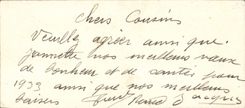 chers Cousins
Veuillez agréer ainsi que
Jeannette nos meilleurs vœux
de bonheur et de santé pour
1933 ainsi que nos meilleurs
baisers Pierre Jacques